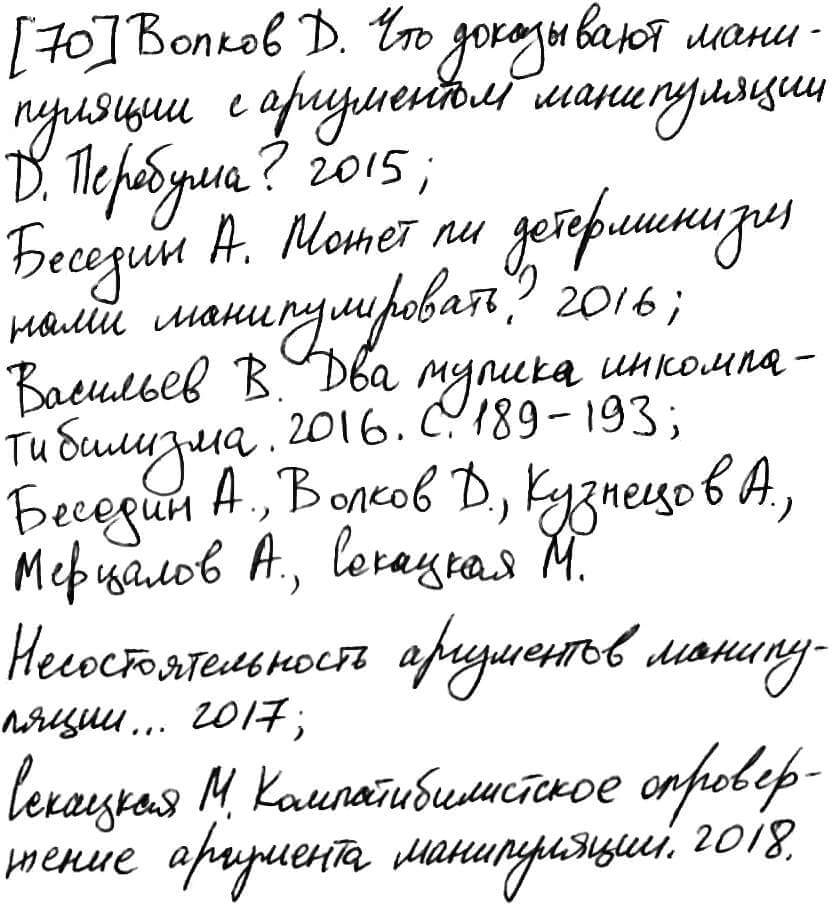 [70] Волков D. Что доказывают мани-
пуляции с аргументом манипуляции
D. Перебума? 2015;
Беседин А. Может ли детерминизм
нами манипулировать? 2016;
Васильев В. Два тупика инкомпа-
тибилизма. 2016. С. 189-193;
Беседин А., Волков D., Кузнецов А.,
Мерцалов А., Секацкая М.
Несостоятельность аргументов манипу-
ляции... 2017;
Секацкая М. Компатибилистское опровер-
жение аргумента манипуляции. 2018.